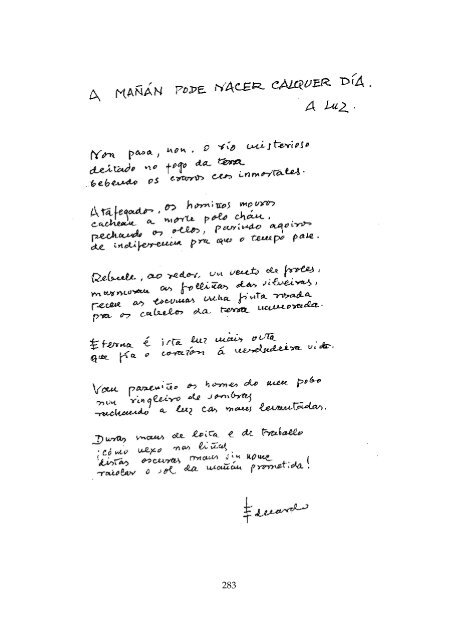 A MAÑÁN PODE NACER CALQUER DÍA.
A LUZ.
Non pasa, non, o río misterioso
deitado no fogo da terra
bebendo os craros ceos inmortales.
Atafegados, os homiños mouros
cachean a morte polo chán,
pechando os ollos, parindo agoiros
de indiferencia pra que o tempo pase.
Rebule, ao redor, un vento de froles,
marmoran as folliñas das silveiras,
tecen as unha rosada
pra os cabelos da terra namorada.
Eterna é ista luz mais outa
que fía o corazón á verdadeira vida.
Van paseniño os homes do meu pobo
nun ringleiro de sombras
rachando a luz cas maus levantadas.
Duras maus de loita e de traballo
¡cómo vexo nas liñas
distas oscuras maus sin nome
raiolar o sol da mañán prometida!
Eduardo
283